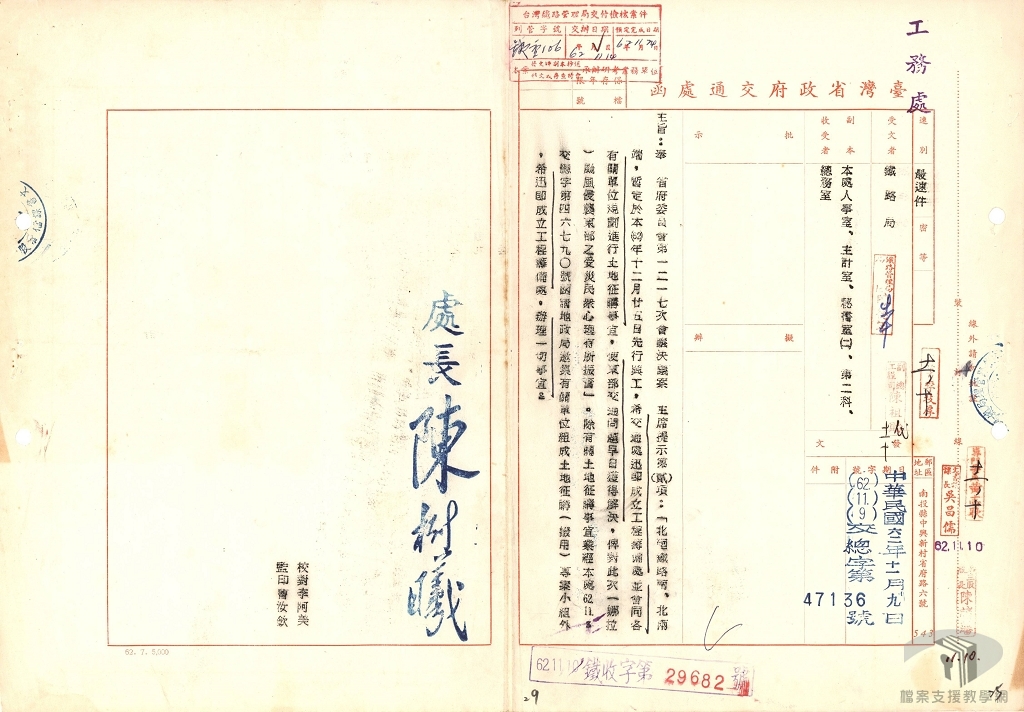 工務處
台灣鐵路管理局交付檢核案件
列管字號
交辦日期
預定完成日期
106
62 11 10
62.11.20
保存年限
檔號
臺灣省政府交通處函
速別
最速件
密等
受文者
鐵路局
副本收受者
本處人事室、主計室、秘書室(二)、第二科、
總務室
批示
擬辦
發文
日期
中華民國六二年十一月九日
字號
(62)(11)(9)交總字第
47136號
附件
郵區地址
南投縣中興新村省府路六號
543
主旨：奉 省府委員會第一二一七次會議決議案 主席提示第(貳)項：「北迴鐵路兩、北南
端，暫定於本(62)年十二月廿五日先行興工，希交通處迅即成立工程籌備處並會同各
有關單位規劃進行土地征購事宜，使東部交通問題早日獲得解決，俾對此次(娜拉
)颱風侵襲東部之受災民眾心理有所振奮」。除有關土地征購事宜業經本處62.11.8.
交總字第四六七九〇號函請地政局邀集有關單位組成土地征購(撥用)專案小組外
，希迅即成立工程籌備處，辦理一切事宜。
處長陳樹曦
校對李阿美
監印曾汝欽
62. 7. 5,000
裝
訂
線
線外請勿
吳昌儒
62.11.10
11.10.
62.11.10
鐵收字第
29682
號
29
75
檔案支援教學網